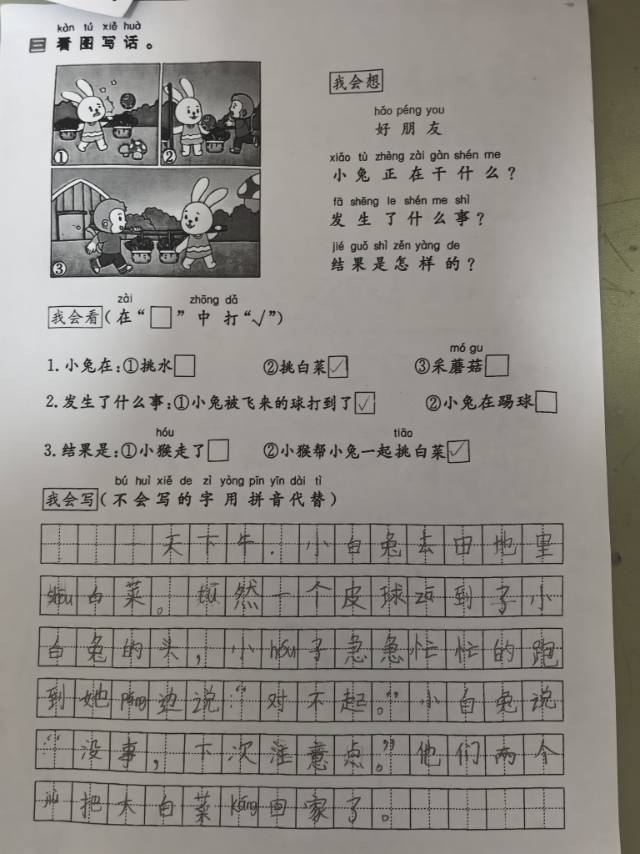 kàn tú xiě huà
三 看图写话。
① ②
③
我会想
hǎo péng you
好朋友
xiǎo tù zhèng zài gàn shén me
小兔正在干什么？
fā shēng le shén me shì
发生了什么事？
jié guǒ shì zěn yàng de
结果是怎样的？
zài zhōng dǎ
我会看(在“□”中打“√”)
mó gu
1.小兔在：①挑水□ ②挑白菜☑ ③采蘑菇□
2.发生了什么事：①小兔被飞来的球打到了☑ ②小兔在踢球□
hóu tiāo
3.结果是：①小猴走了□ ②小猴帮小兔一起挑白菜☑
bú huì xiě de zì yòng pīn yīn dài tì
我会写(不会写的字用拼音代替)
一天下午.小白兔去田地里
shōu白菜。tū然一个皮球zá到了小
白兔的头，小hóu子急急忙忙的跑
到她páng边说“对不起。”小白兔说
“没事，下次注意点。”他们两个
jiù把大白菜káng回家了。